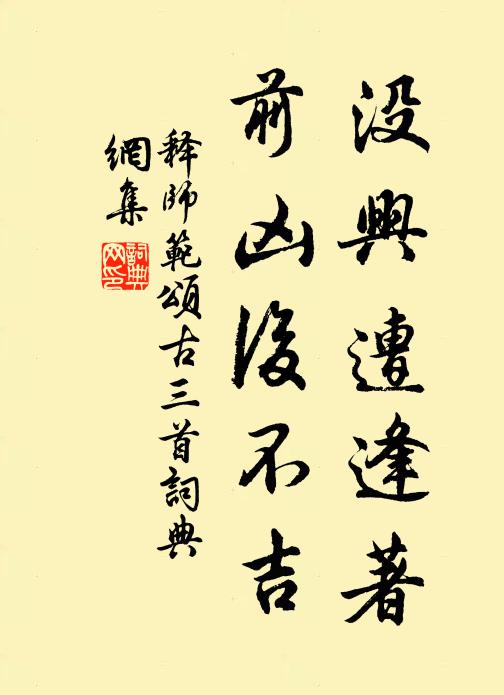 没興遭逢著
前凶後不吉
释師範頌古三首詞典
網集
詞典網印